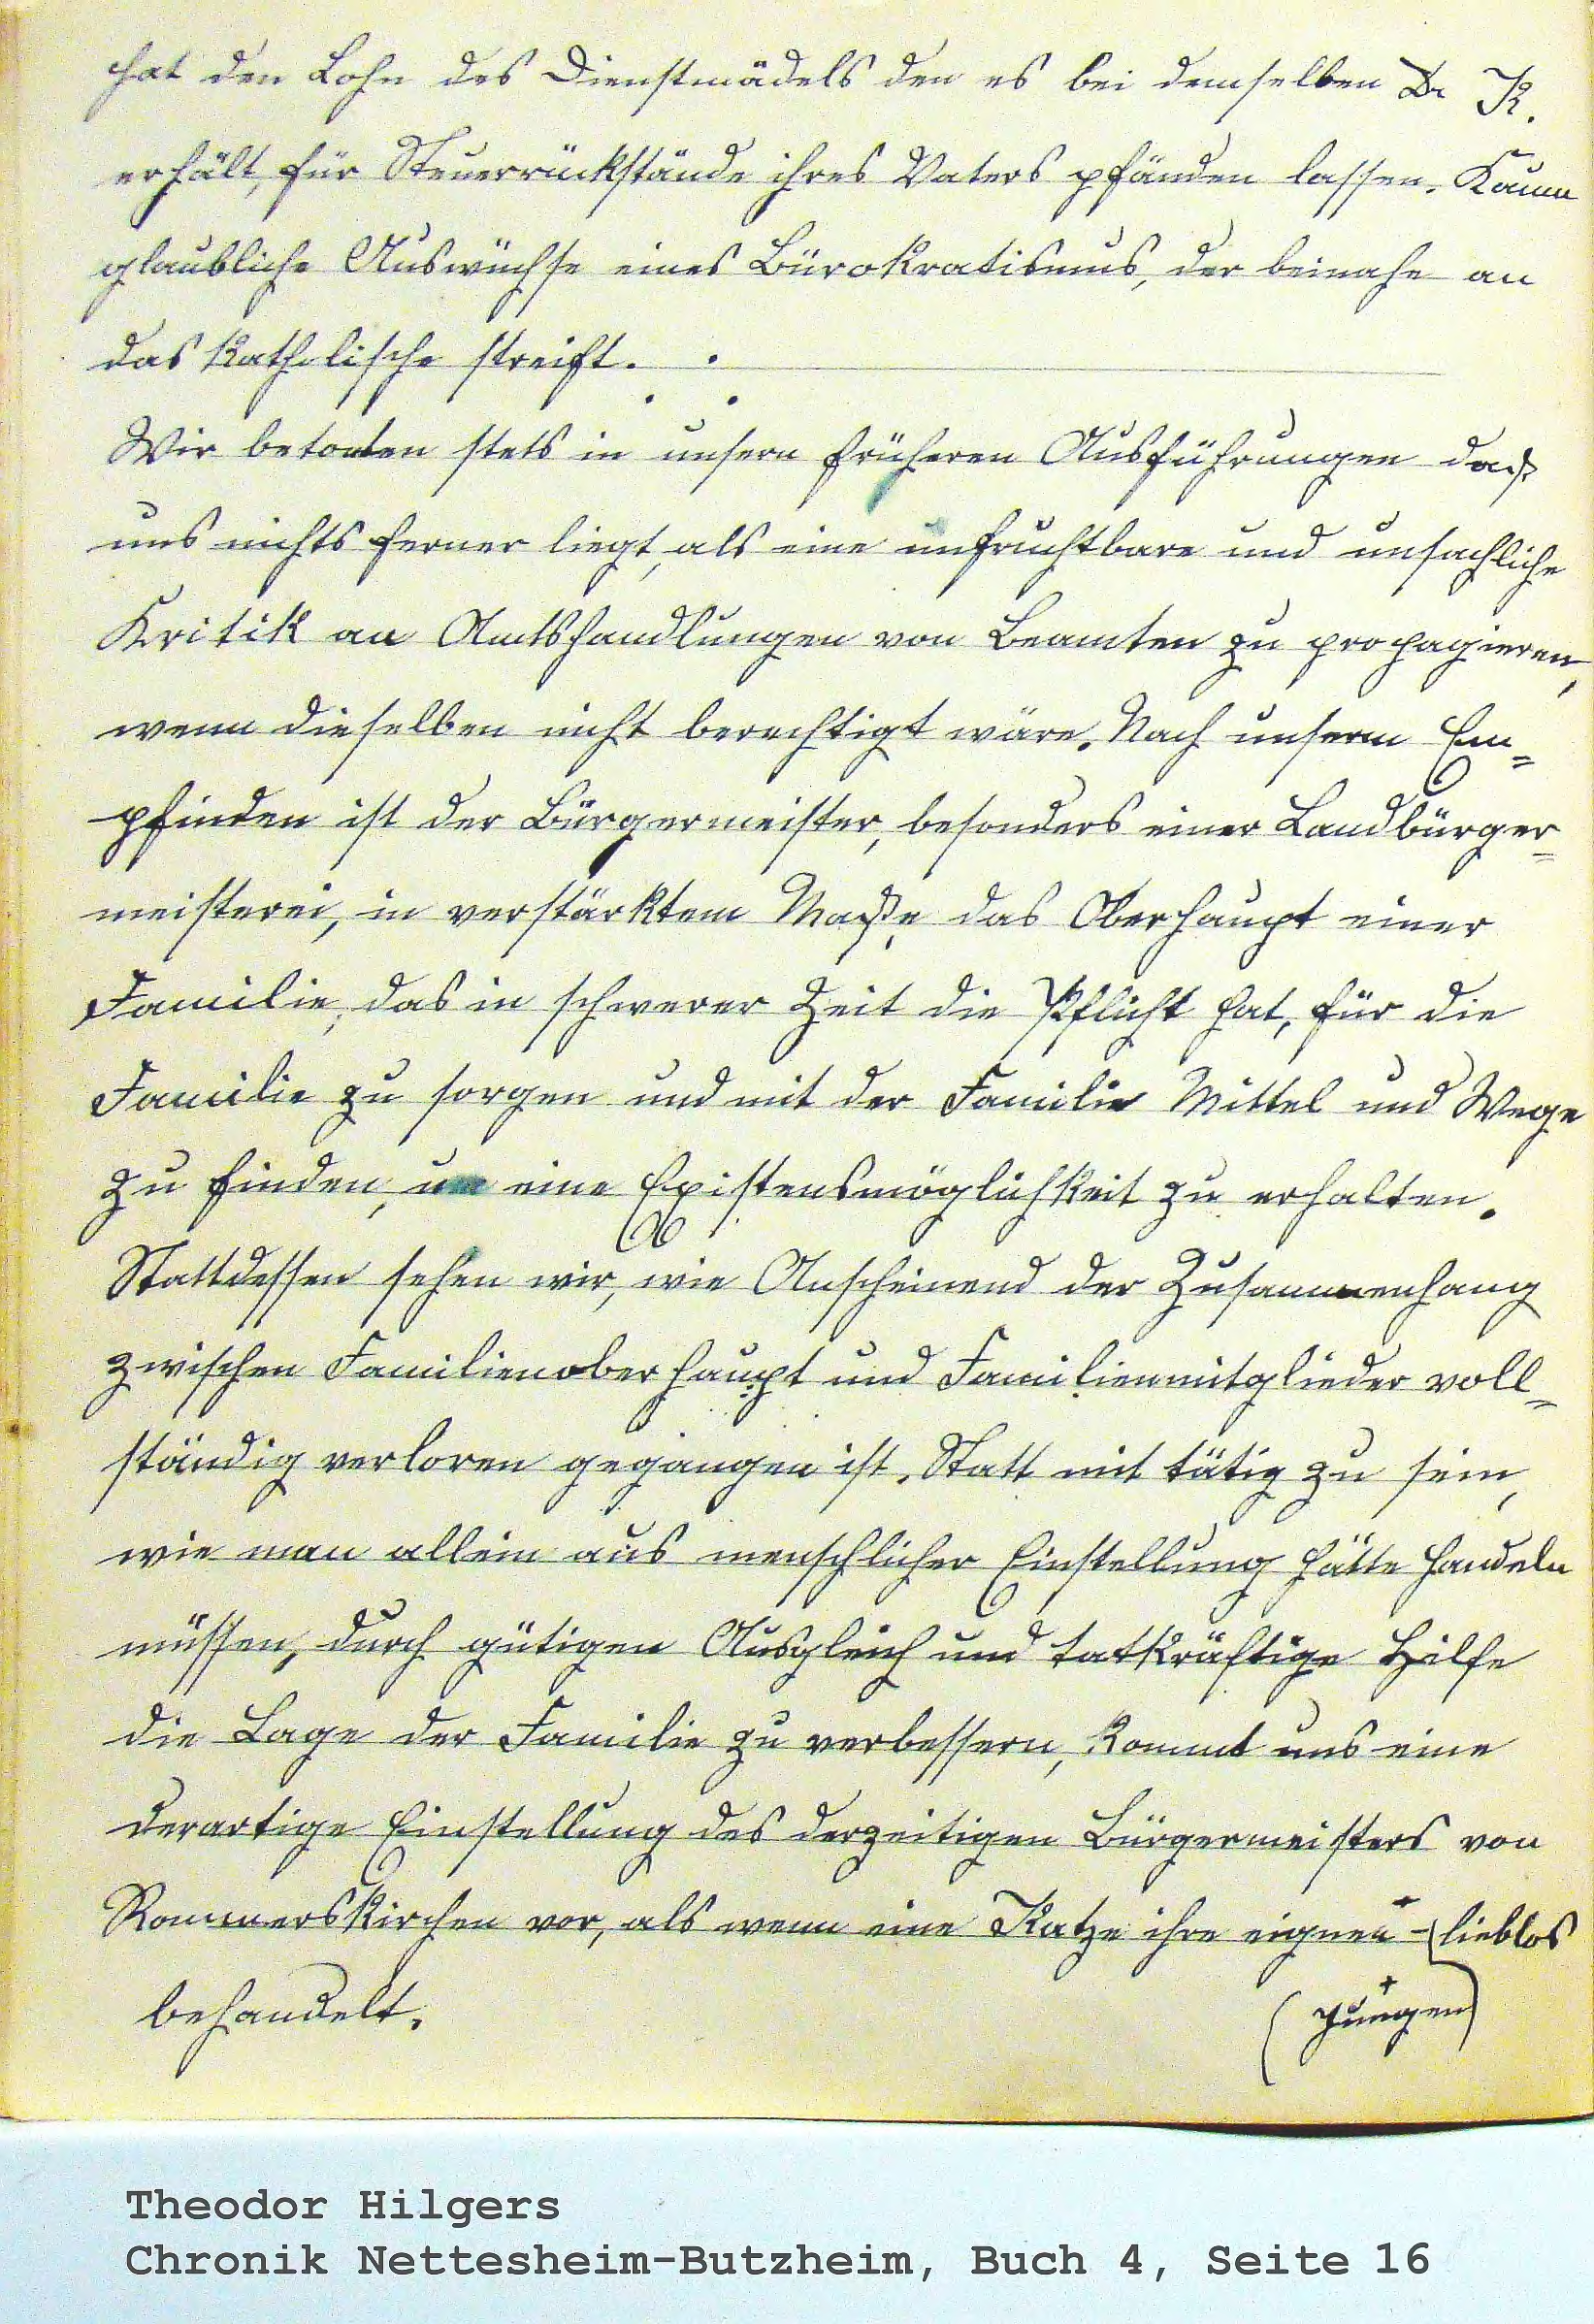 hat den Lohn des Dienstmädels den es bei demselben Dr K.
erhält, für Steuerrückstände ihres Vaters pfänden lassen. Kaum
glaubliche Auswüchse eines Bürokratismus, der beinahe an
das Katholische streift.
Wir betonten stets in unsern früheren Ausführungen daß
uns nichts ferner liegt, als eine unfruchtbare und unsachliche
Kritik an Amtshandlungen von Beamten zu propagieren,
wenn dieselben nicht berechtigt wäre. Nach unserm Em=
pfinden ist der Bürgermeister, besonders einer Landbürger=
meisterei, in verstärktem Maße das Oberhaupt einer
Familie, das in schwerer Zeit die Pflicht hat, für die
Familie zu sorgen und mit der Familie Mittel und Wege
zu finden, um eine Existensmöglichkeit zu erhalten.
Stattdessen sehen wir, wie Anscheinend der Zusammenhang
zwischen Familienoberhaupt und Familienmitglieder voll=
ständig verloren gegangen ist. Statt mit tätig zu sein,
wie man allein aus menschlicher Einstellung hätte handeln
müssen, durch gütigen Ausgleich und tatkräftige Hilfe
die Lage der Familie zu verbessern, kommt uns eine
derartige Einstellung des derzeitigen Bürgermeisters von
Rommerskirchen vor, als wenn eine Katze ihre eignen + lieblos
(+ Jungen)
behandelt.
Theodor Hilgers
Chronik Nettesheim-Butzheim, Buch 4, Seite 16